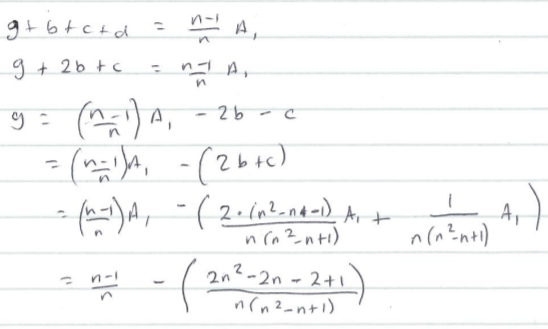 g + b + c + d = n-1/n A₁
g + 2b + c = n-1/n A₁
g = (n-1/n) A₁ - 2b - c
= (n-1/n) A₁ - (2b + c)
= (n-1/n) A₁ - (2·(n²-n-1)/n(n²-n+1) A₁ + 1/n(n²-n+1) A₁)
= n-1/n - (2n²-2n-2+1/n(n²-n+1))